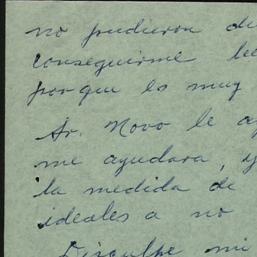 no pudieron de
conseguirme le
porque es muy
Sr. Novo le a
me ayudara, y
la medida de
ideales a no
Disculpe mi